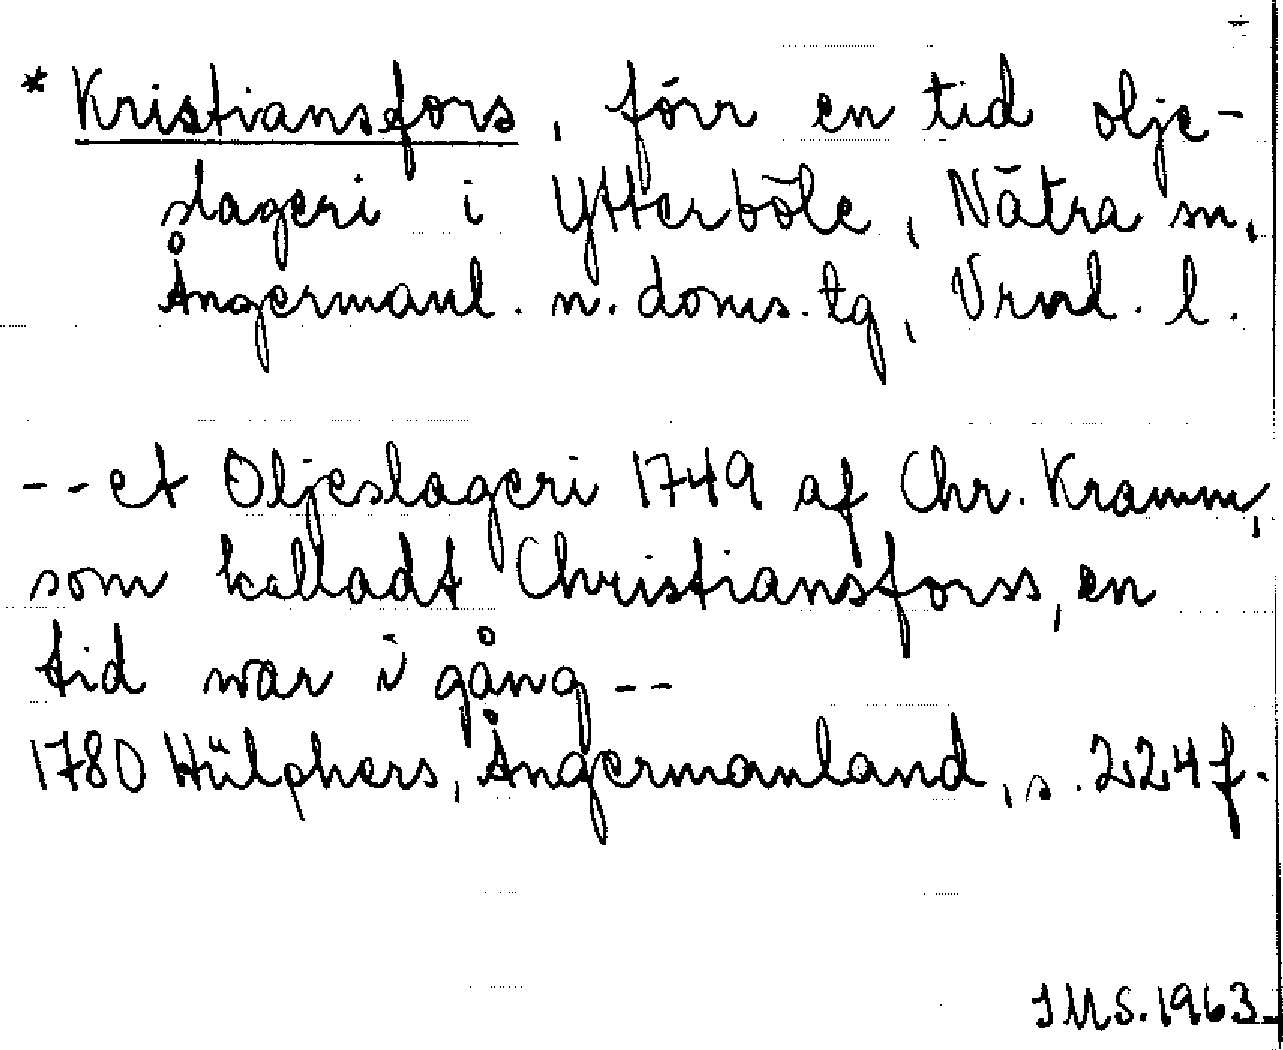 * Kristiansfors, förr en tid olje-
slageri i Ytterböle, Nätra sn,
Ångermanl. n. doms. tg, Vrnl. l.
-- et Oljeslageri 1749 af Chr. Kramm,
som kalladt Christiansforss, en
tid war i gång --
1780 Hülphers, Ångermanland, s. 224 f.
IMS. 1963